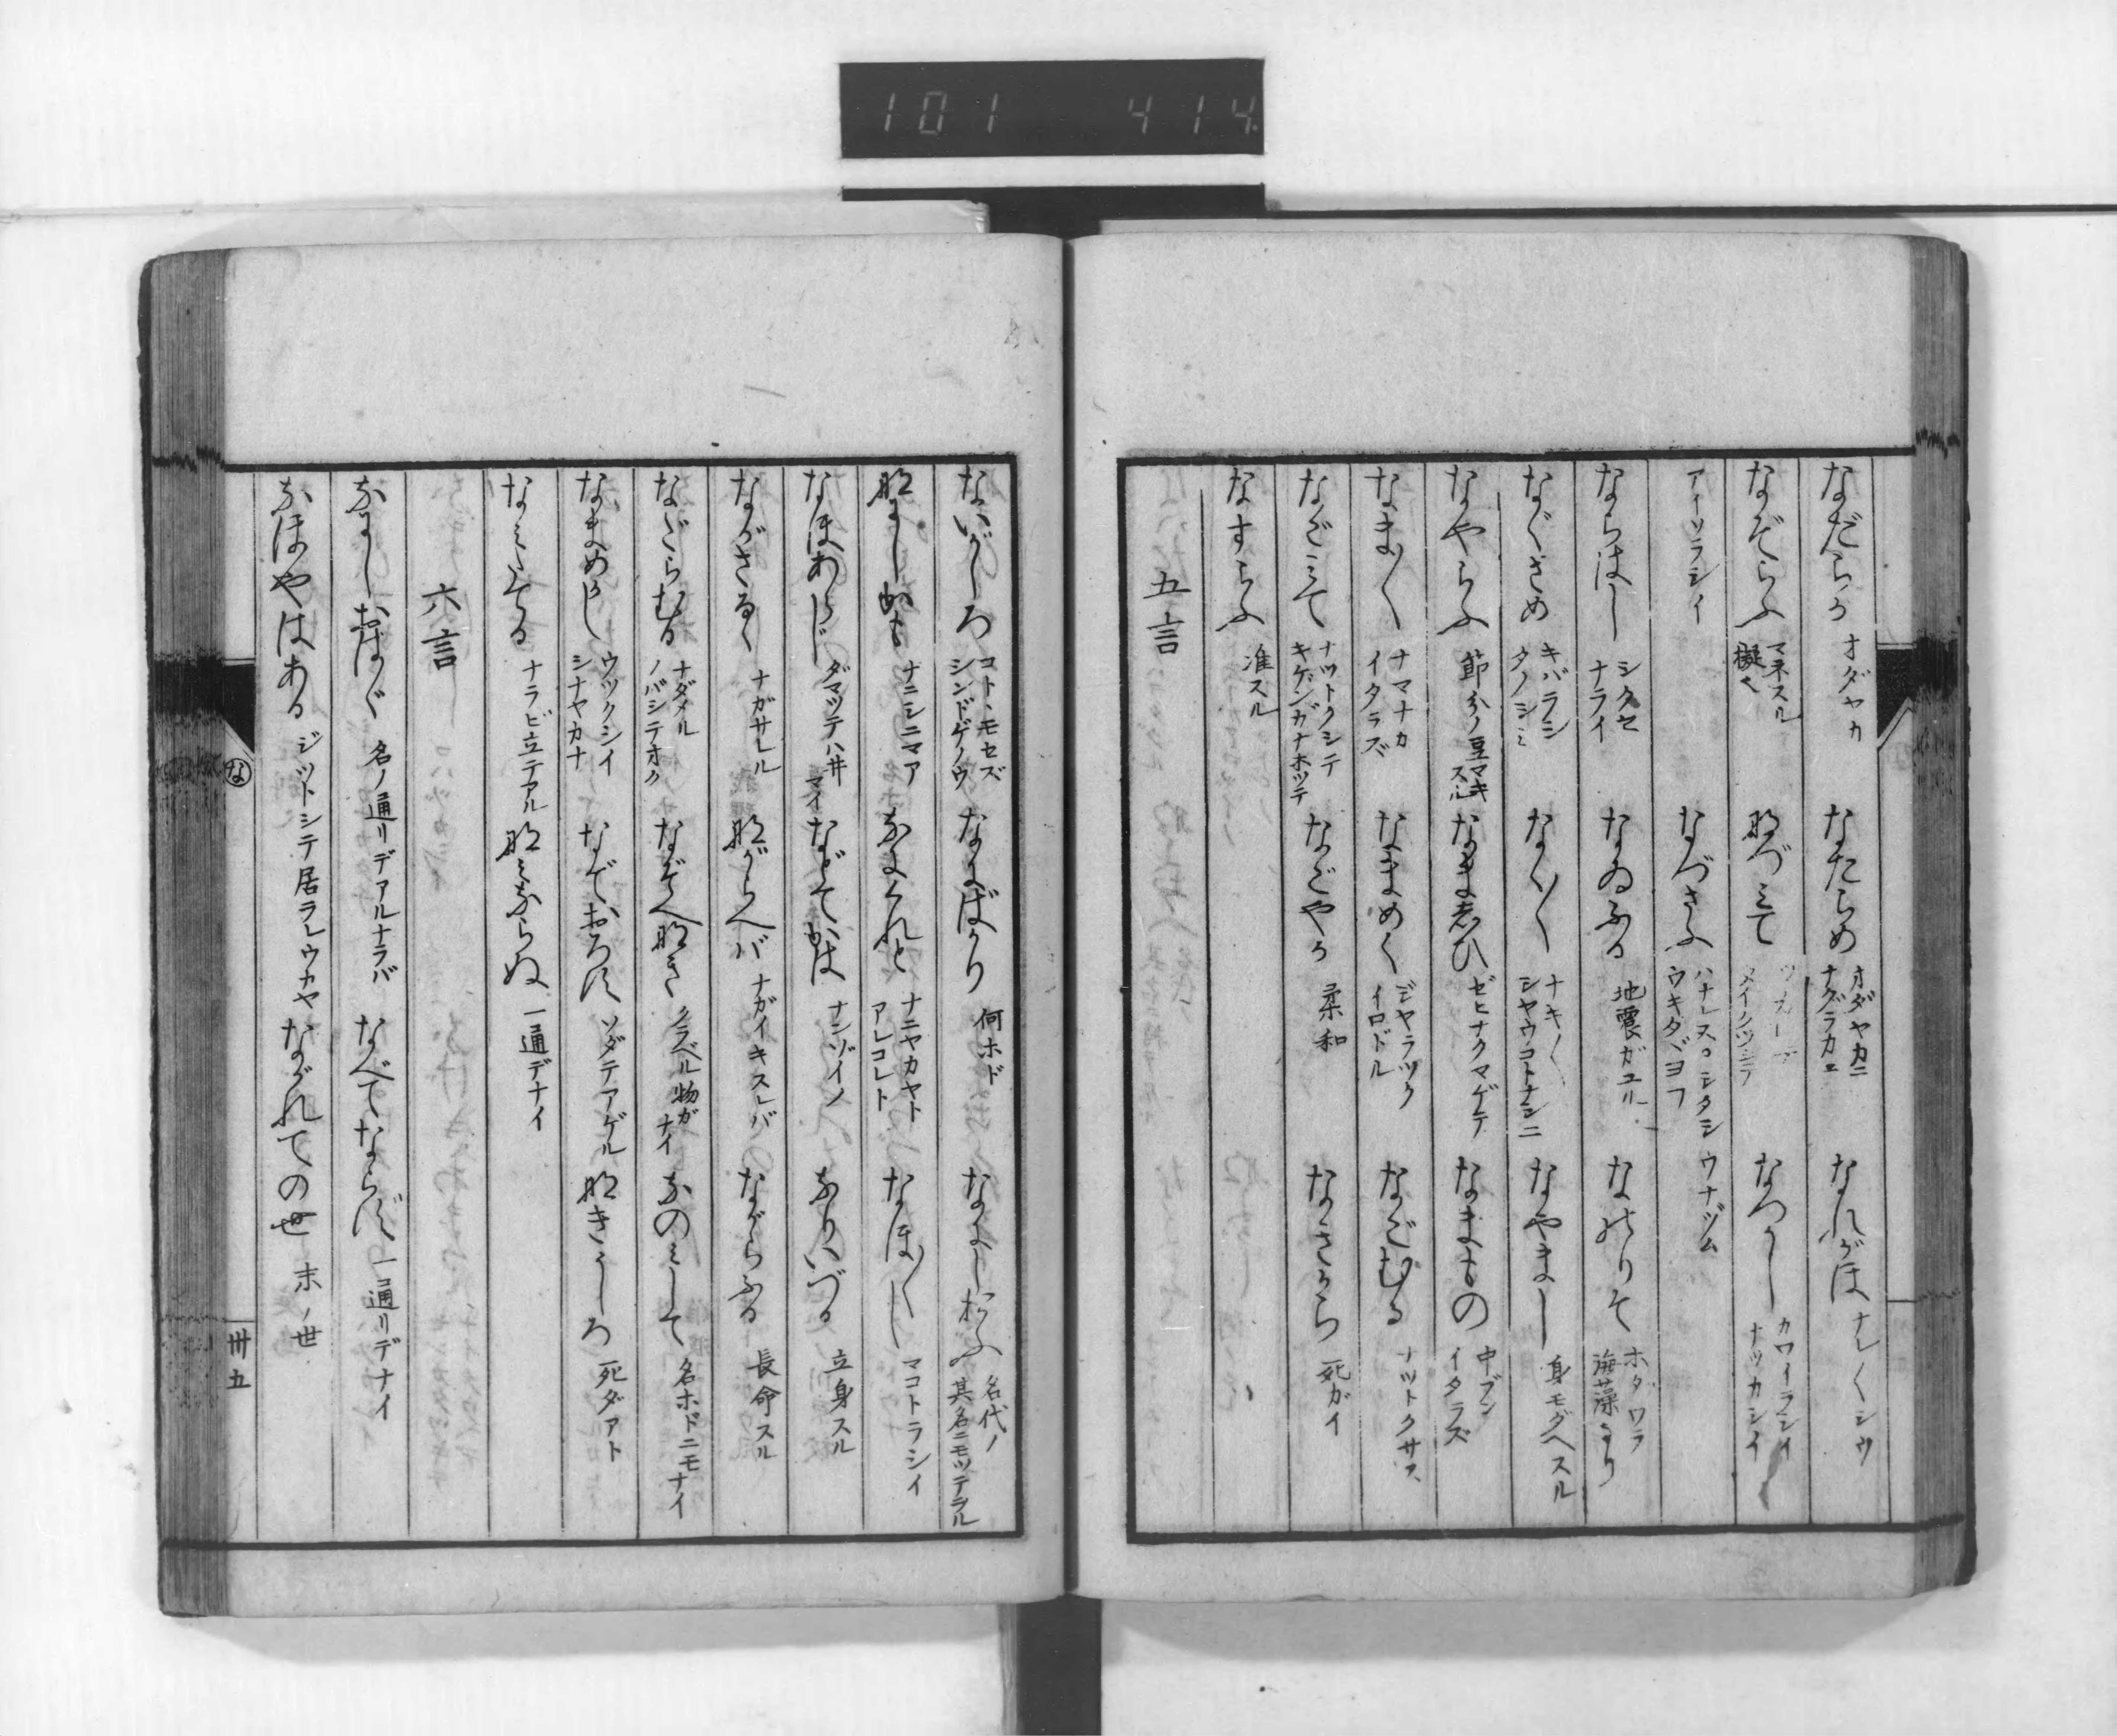 101 414
なだらか オダヤカ なたらめ オダヤカニ ナダラカニ なれがほ ナレ〱シウ
なぞらふ マネスル 擬也 なづみて なつかし カワイラシイ ナツカシイ
アイソラシイ なづさふ ハナレヌ ウキタヾヨフ ウナヅム
ならはし シクセ ナライ なゐふる 地震ガユル なのりそ ホダワラ 海藻なり
なぐさめ キバラシ タノシミ なく〱 ナキ〱 シヤウコトナシニ なやまし 身モダヘスル
なやらふ 節分ノ豆マキスル なまじひ ゼヒナクマゲテ なまもの 中ブン イタラズ
なま〱 ナマナカ イタラズ なまめく ジヤラツク イロドル なごむる ナツトクサス
なごみて ナツトクシテ キゲンガナホツテ なごやか 柔和 なきから 死ガイ
なすらふ 準スル
五言
ないがしろ コトヽモセズ シンドゲノウ なにばかり 何ホド なにしおふ 名代ノ 其名ニモツテヲル
なにしかも ナニシニマア なにくれと ナニヤカヤト アレコレト なほ〱し マコトラシイ
なほあらじ ダマツテハ井マイ などてかは ナンゾイノ なりいづる 立身スル
ながさるゝ ナガサレル ながらへバ ナガイキスレバ ながらふる 長命スル
なだらむる ナダメル ノバシテオク なぞへなき クラベル物ガナイ なのみして 名ホドニモナイ
なまめかし ウツクシイ シナヤカナ なでおろす ソダテアゲル なきうしろ 死ダアト
なみたてる ナラビ立テアル なみならぬ 一通デナイ
六言
なにしおはゞ 名ノ通リデアルナラバ なべてならず 一通リデナイ
なほやはある ジツトシテ居ラレウカヤ ながれての世 末ノ世
な
卅五